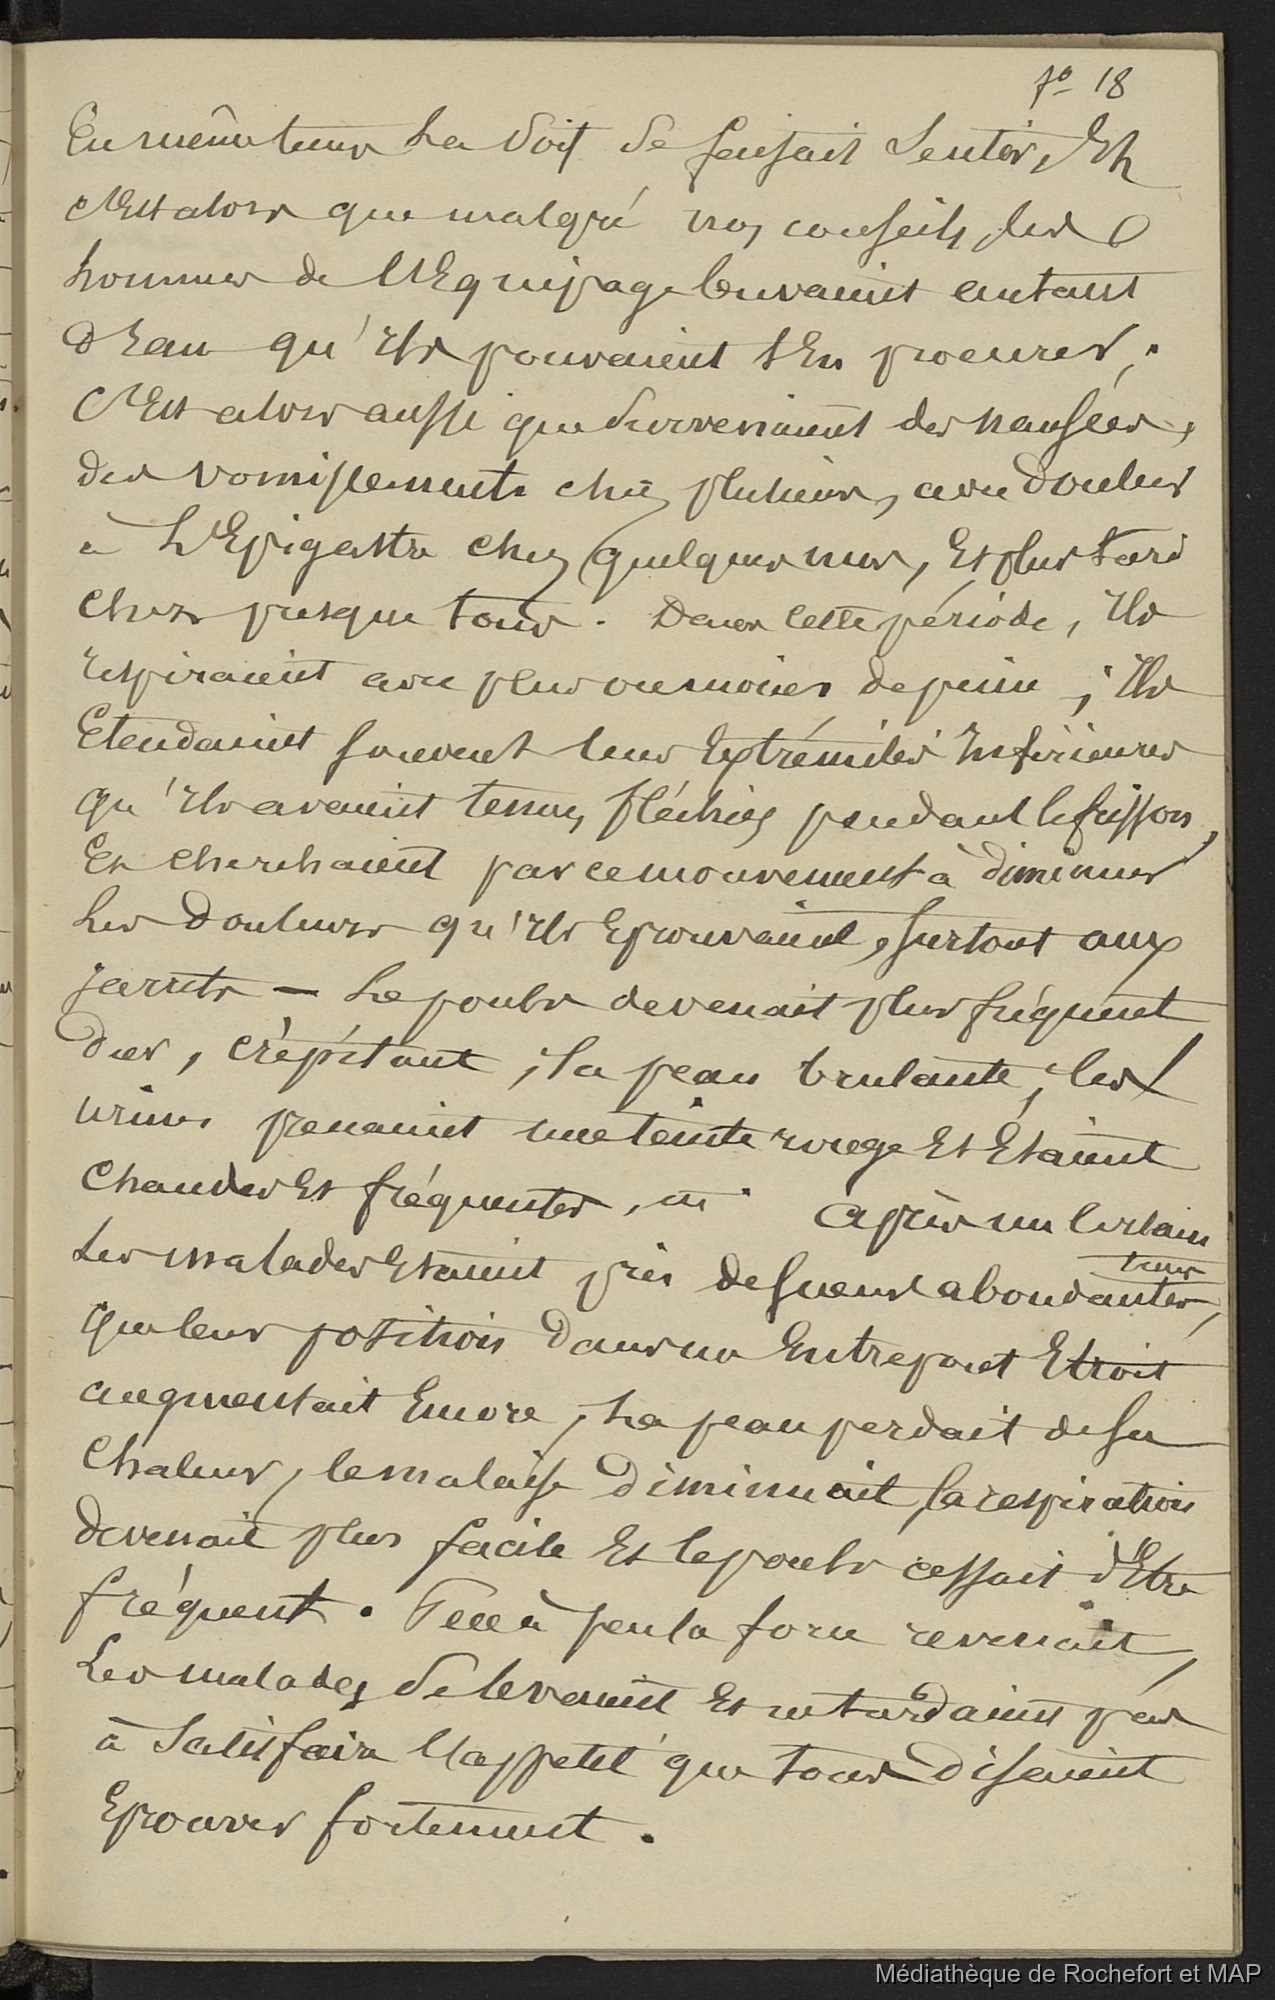 fo 18
En même tems La Soif Se faisait Sentir, Et
c'Est alors que malgré nos conseils, les
hommes de l'Equipage buvaient autant
d'Eau qu'ils pouvaient s'En procurer ;
C'Est alors aussi que Survenaient des nausées,
des vomissements chez plusieurs, avec douleur
à L'Epigastre chez quelques uns, Et plus tard
chez presque tous. Dans cette période, ils
respiraient avec plus ou moins de peine ; ils
Etendaient souvent leurs Extrémités Inférieures
qu'ils avaient tenues fléchies pendant le frisson,
Et cherchaient par ce mouvement à diminuer
Les Douleurs qu'ils Eprouvaient, surtout aux
jarrets — Le pouls devenait plus fréquent
dur, crépitant ; la peau brulante ; les
urines prenaient une teinte rouge Et Etaient
chaudes Et fréquentes, Après un certain
tems
Les malades Etaient pris de sueurs abondantes,
que leur position dans un Entrepont Etroit
augmentait Encore ; La peau perdait de sa
Chaleur, le malaise Diminuait, la respiration
devenait plus facile Et le pouls cessait d'Etre
fréquent. Peu à peu la force revenait,
Les malades Se levaient Et ne tardaient pas
à Satisfaire l'appetit que tous disaient
Eprouver fortement.
Médiathèque de Rochefort et MAP